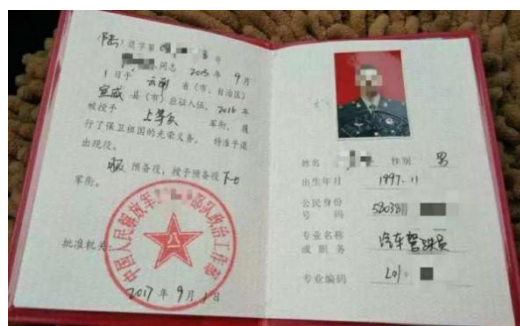 (陆) 退字第 号
同志 2015 年 9 月
1 日于 云南 省(市、自治区)
宣威 县(市)应征入伍, 2016 年
被授予 上等兵 军衔, 履
行了保卫祖国的光荣义务, 特准予退
出现役。
服 预备役, 授予预备役
军衔。
批准机关:
中国人民解放军 部队政治工作部
2017 年 9 月 1 日
姓名 性别 男
出生年月 1997.11
公民身份
号 码
专业名称
或职务 汽车驾驶员
专业编码